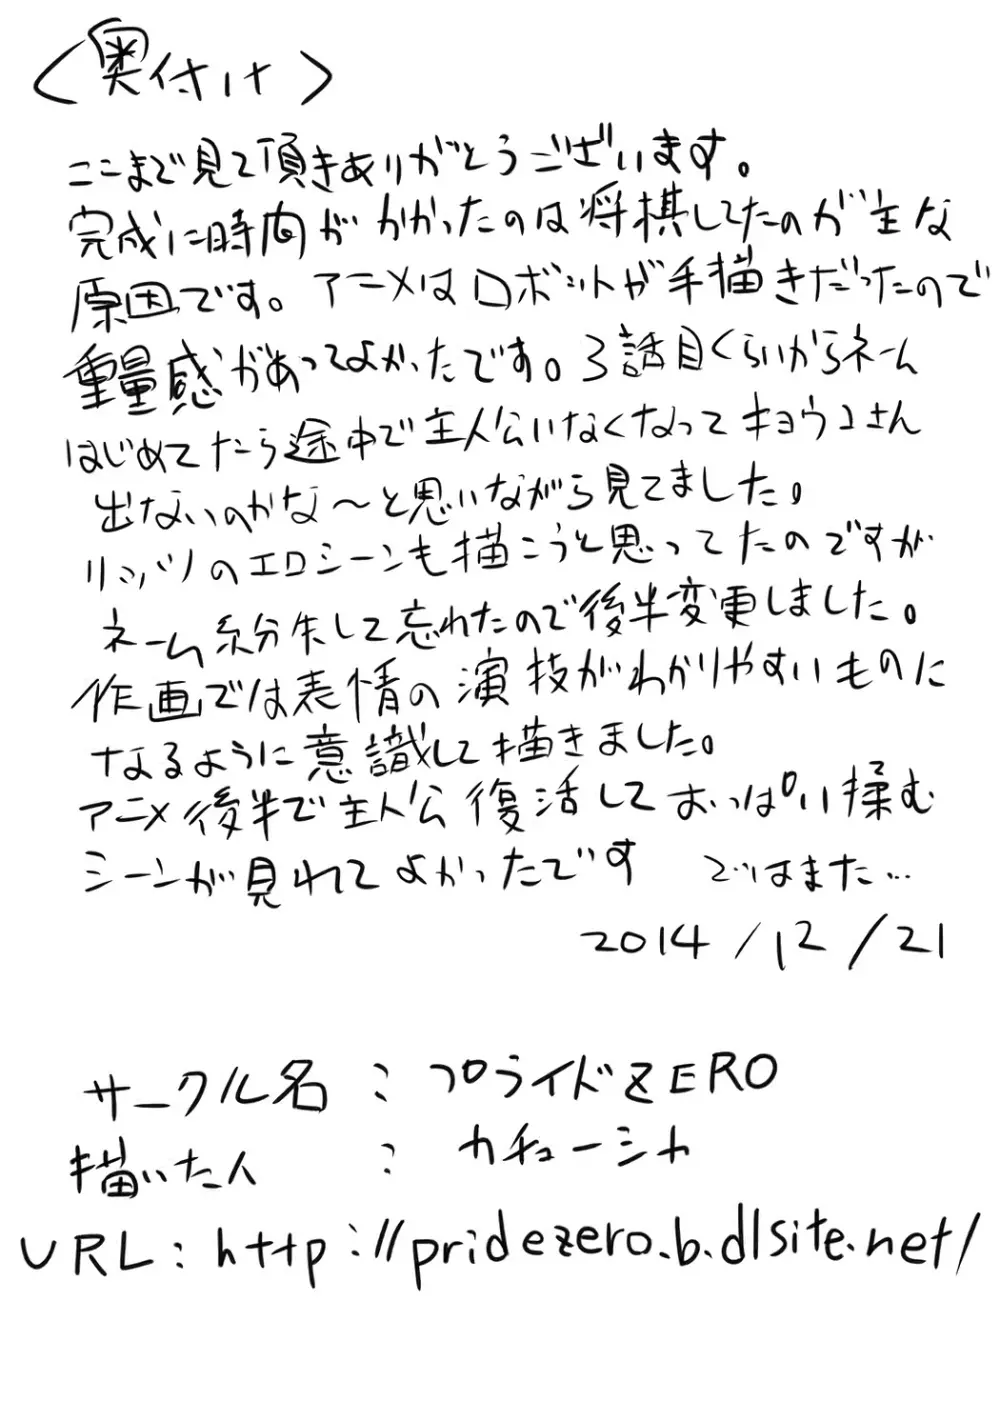 〈奥付け〉
ここまで見て頂きありがとうございます。
完成に時間がかかったのは将棋してたのが主な
原因です。アニメはロボットが手描きだったので
重量感があってよかったです。3話目くらいからネーム
はじめてたら途中で主人公いなくなってキョウコさん
出ないのかな〜と思いながら見てました。
リッツのエロシーンも描こうと思ってたのですが
ネーム紛失して忘れたので後半変更しました。
作画では表情の演技がわかりやすいものに
なるように意識して描きました。
アニメ後半で主人公復活しておっぱい揉む
シーンが見れてよかったです ではまた…
2014/12/21
サークル名：プライドZERO
描いた人：カチューシャ
URL：http://pridezero.b.dlsite.net/